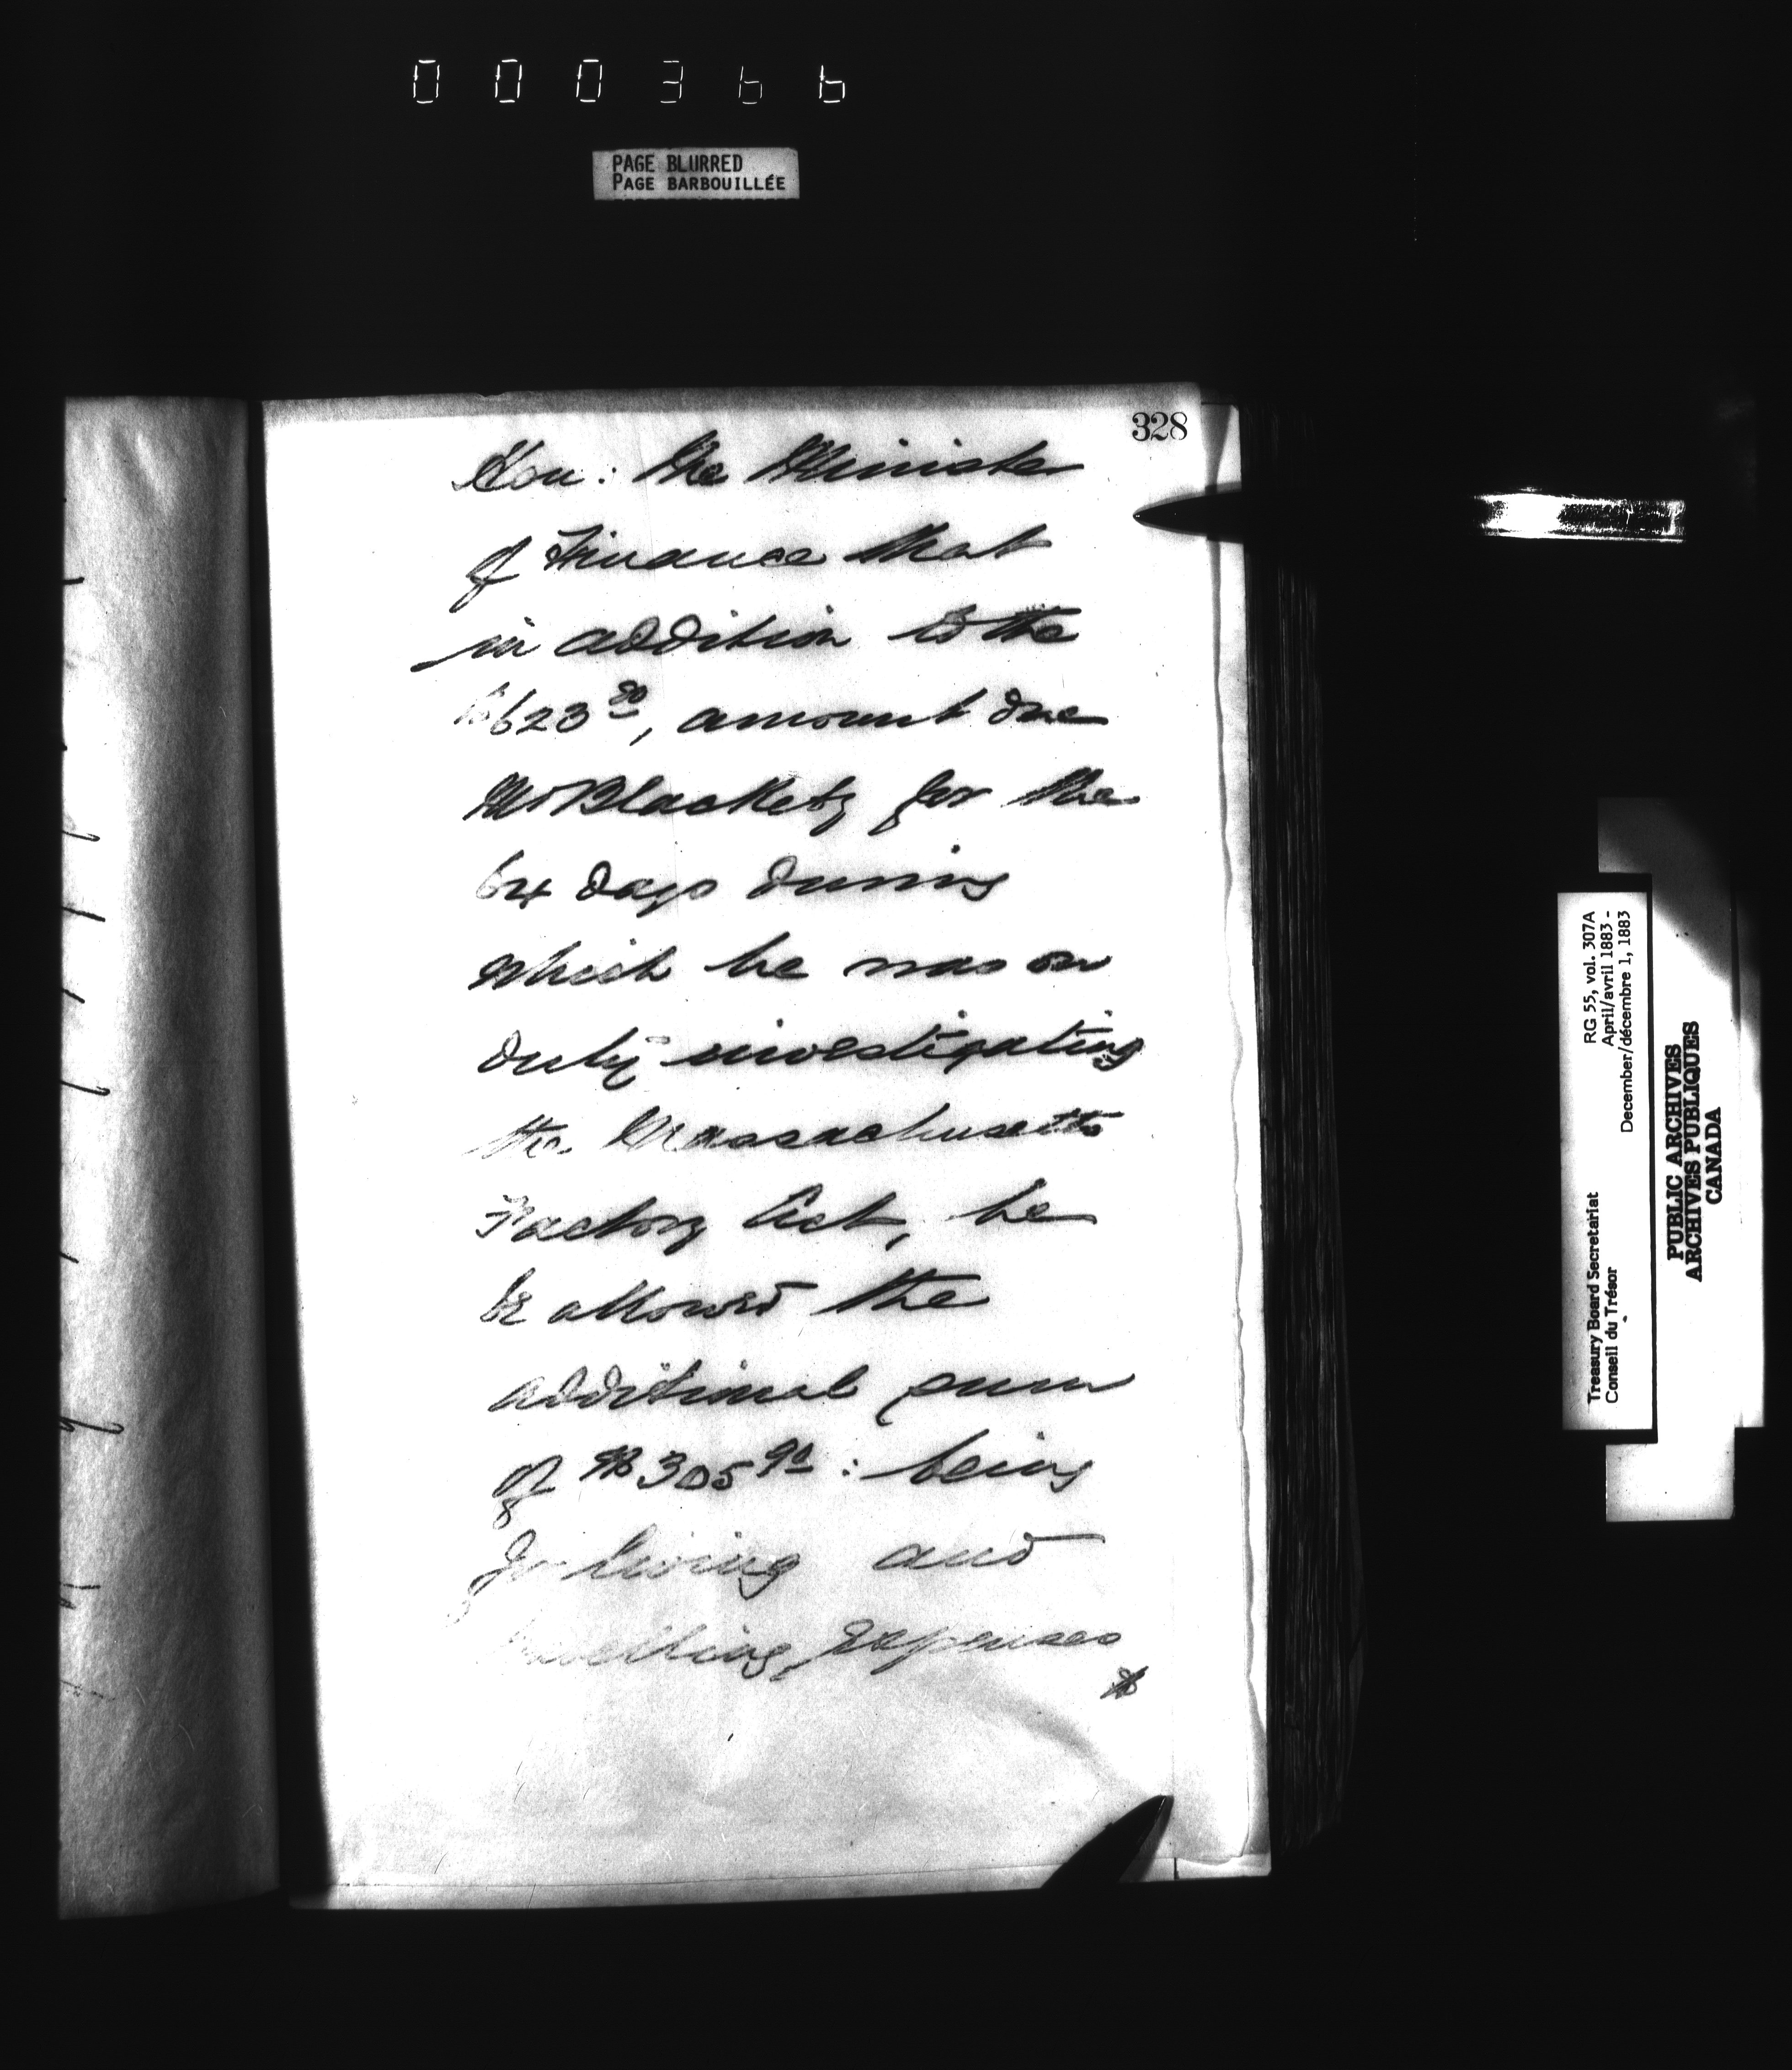 000366
PAGE BLURRED
PAGE BARBOUILLÉE
328
Hon: the Minister
of Finance that
in addition to the
$623 90, amount due
Mr Blackeby for the
64 days during
which he was on
duty investigating
the Massachusetts
Factory Act, he
be allowed the
additional sum
of $305 90: being
for living and
travelling expenses
RG 55, vol. 307A
April/avril 1883 -
December/décembre 1, 1883
Treasury Board Secretariat
Conseil du Trésor
PUBLIC ARCHIVES
ARCHIVES PUBLIQUES
CANADA